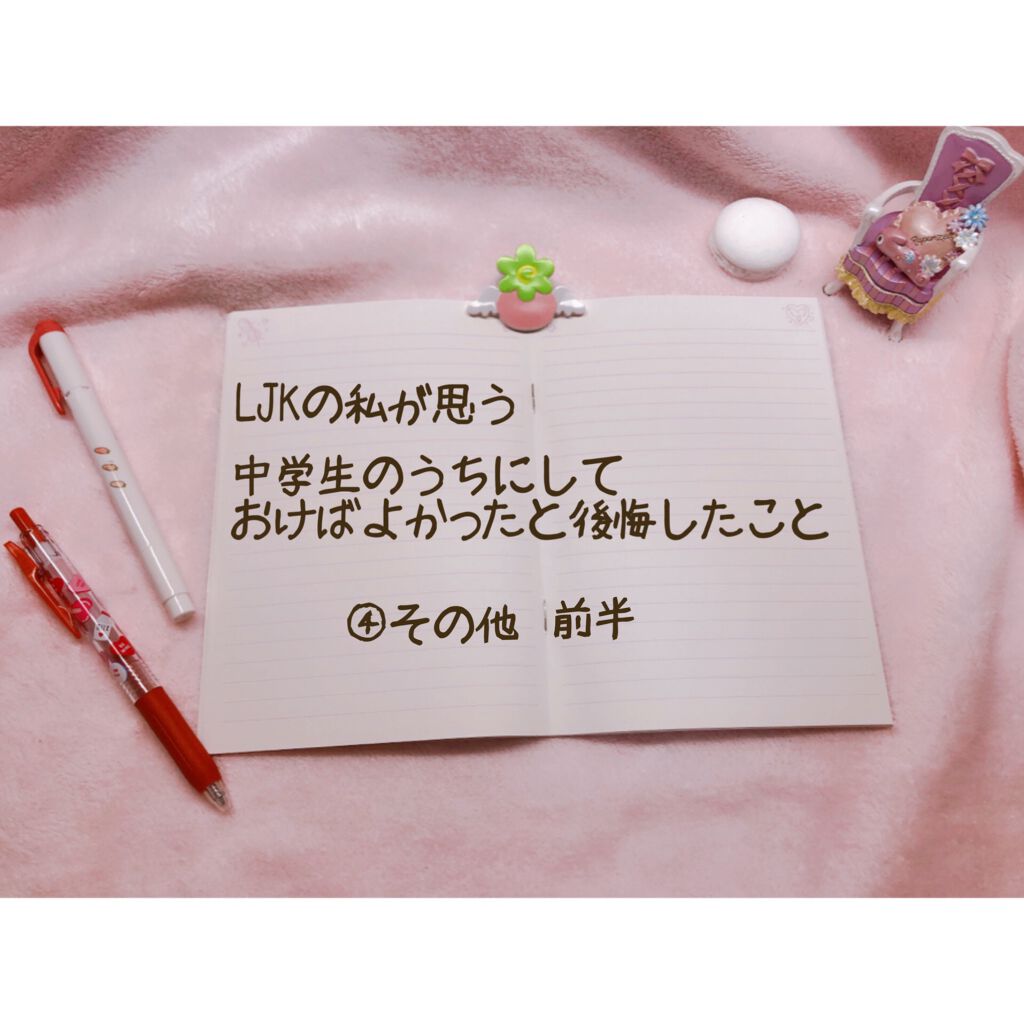 LJKの私が思う
中学生のうちにして
おけばよかったと後悔したこと
④その他 前半